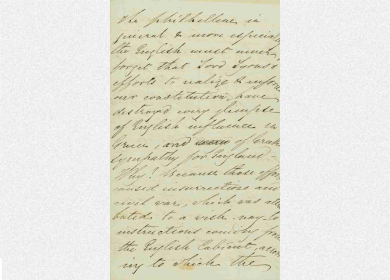 the philhellene in
general & more especially
the English, must never
forget that Lord Lyons's
efforts to realize & enforce
our constitution, have
destroyed every glimpse
of English influence in
Greece, and of Greek
sympathy for England –
Why? Because those efforts
caused insurrections and
civil war, which was
buted to a wish, nay to
instructions coming from
the English Cabinet,
ing to which the